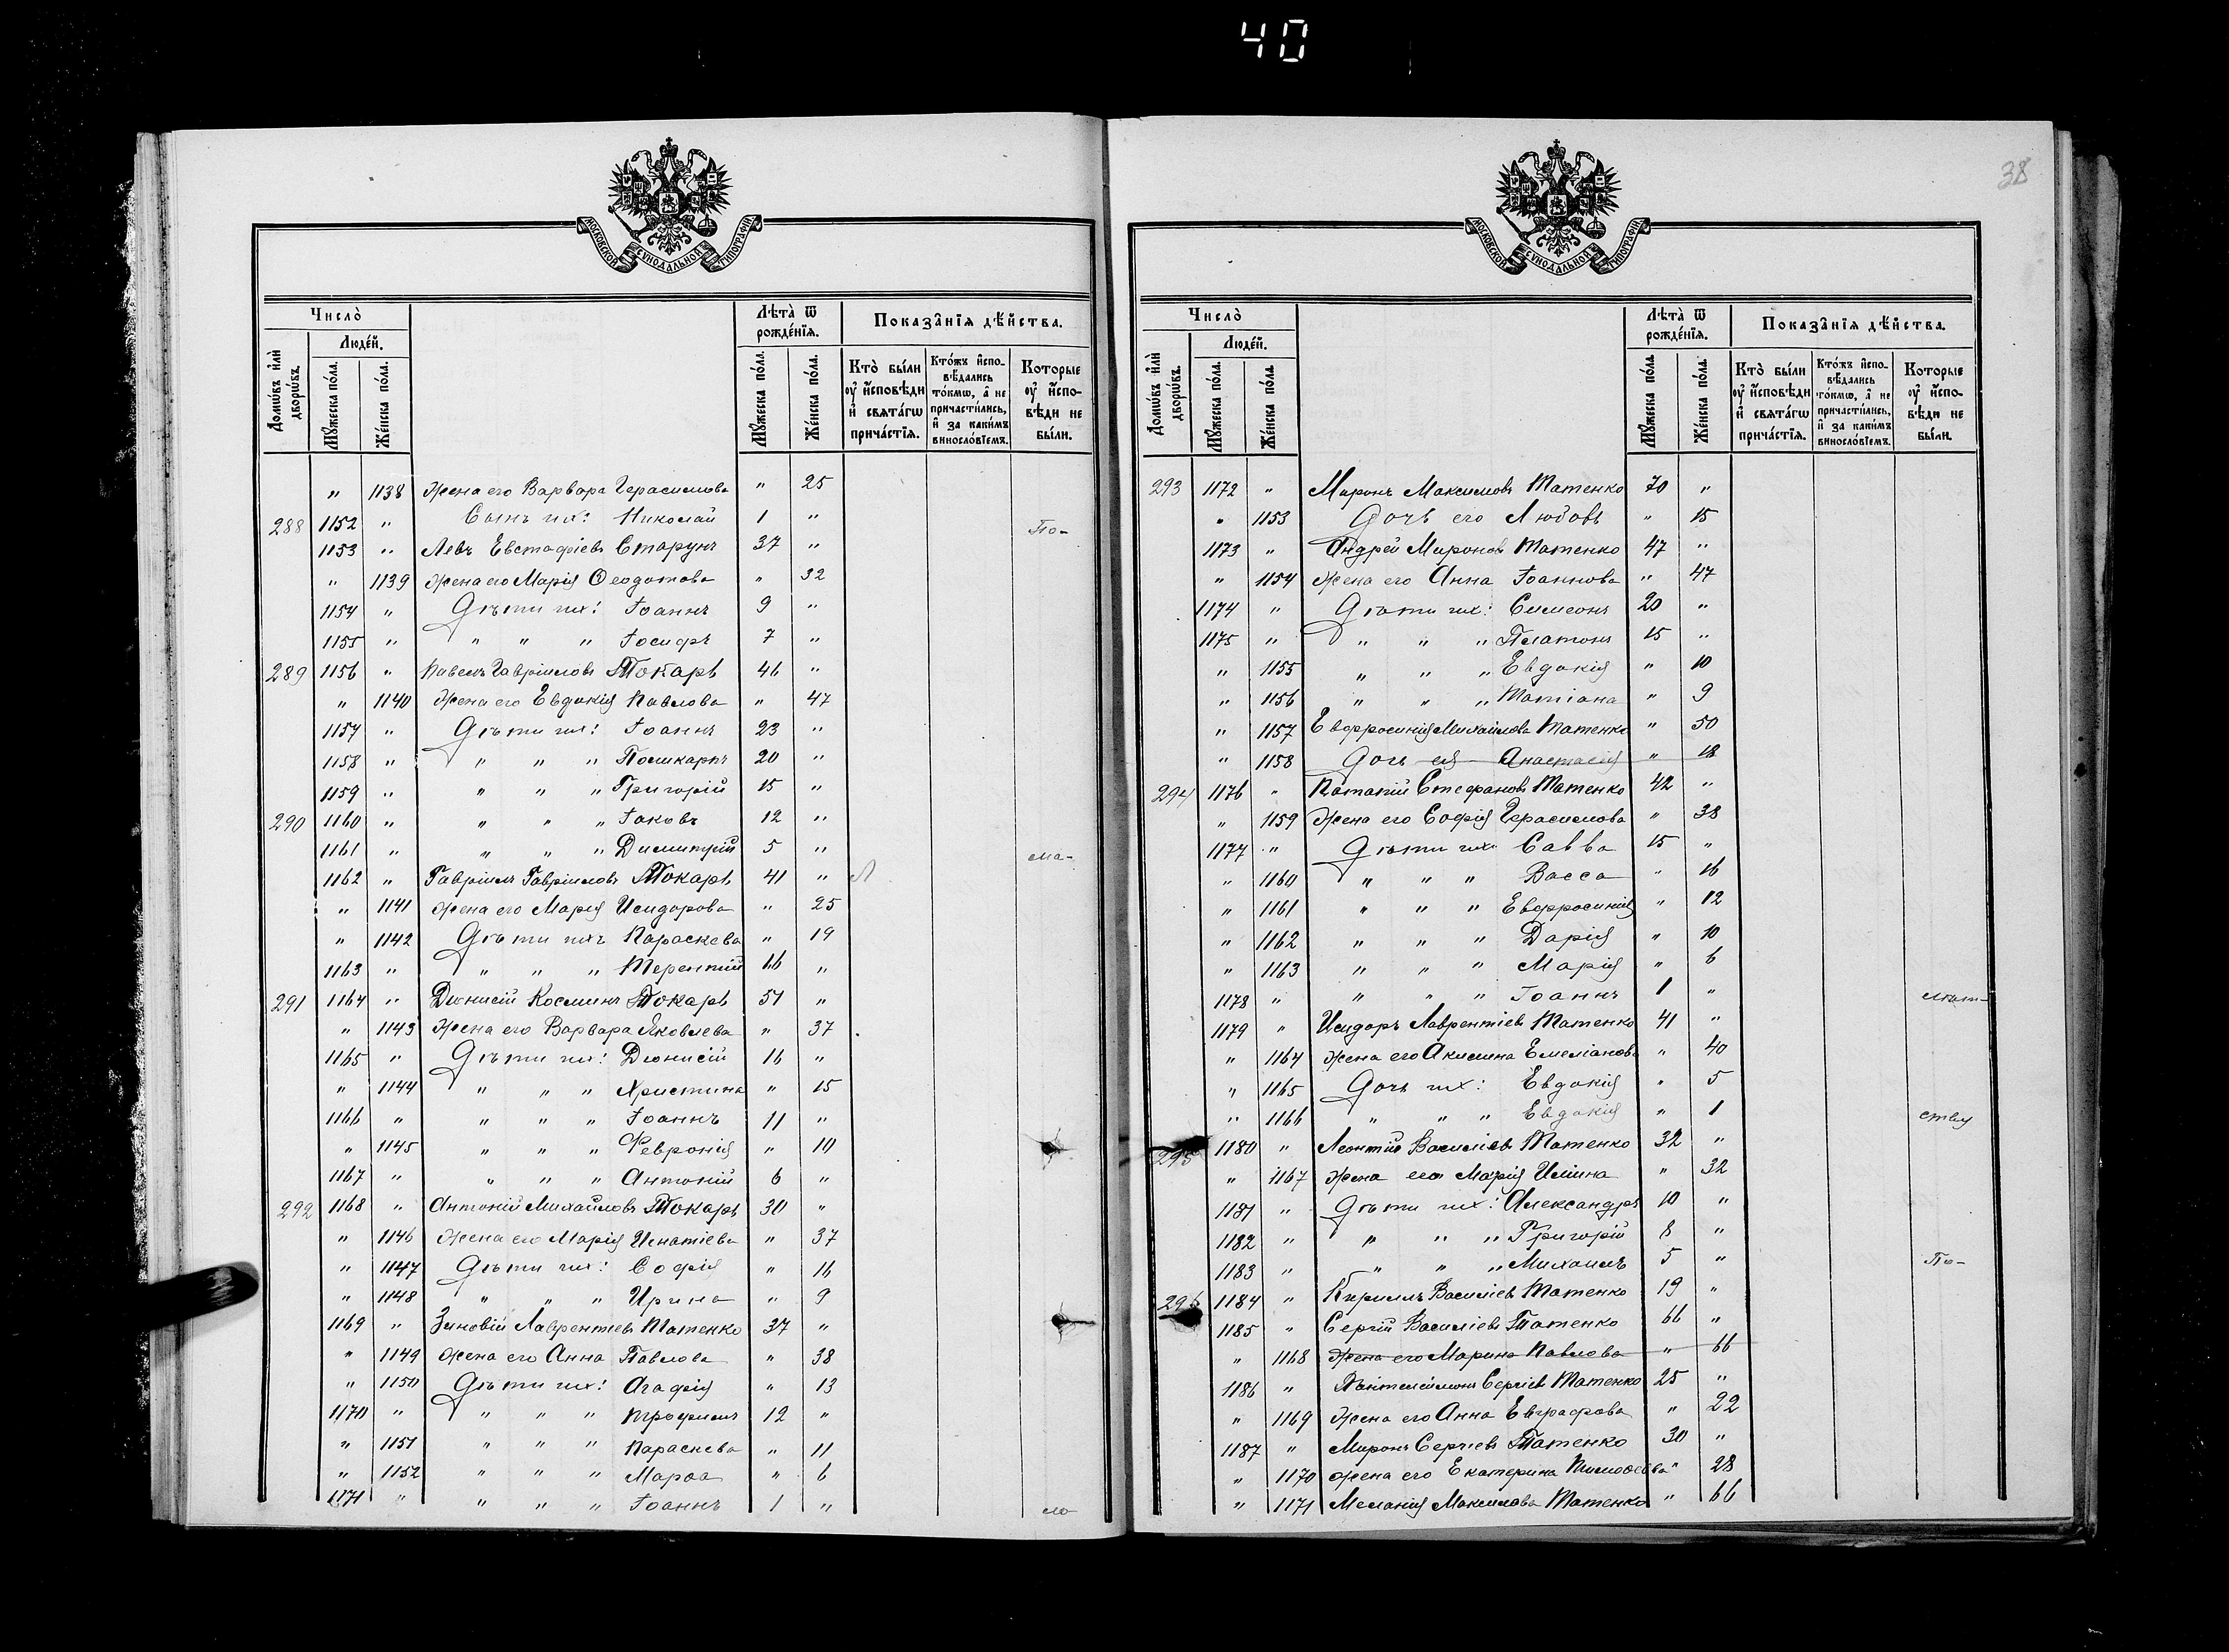 40
МОСКОВСКОЙ СѴНОДАЛЬНОЙ ТИПОГРАФІИ
Число̀
Людéй.
Домѡ́въ и҆лѝ дворѡ́въ.
Мꙋ́жеска по́ла.
Же́нска по́ла.
Лѣ́та̀ ѿ рожде́нїѧ.
Мꙋ́жеска по́ла.
Же́нска по́ла.
Показа̑нїѧ дѣ́йства.
Кто̀ бы́ли ᲂу҆ и҆сповѣди и҆ свѧта́гѡ прича́стїѧ.
Кто́жъ и҆сповѣ́дались то́кмѡ, а҆ не причасти́лись, и҆ за каки́мъ винослоо́вїемъ.
Которые ᲂу҆ и҆сповѣди не бы́ли.
" 1138 Жена его Варвара Герасимова " 25
288 1152 " Сынъ ихъ: Николай 1 " По-
1153 " Левъ Евстафіевъ Старунъ 37 "
" 1139 Жена его Марія Ѳеодотова " 32
1154 " Дѣти ихъ: Іоаннъ 9 "
1155 " " " " Іосифъ 7 "
289 1156 " Павелъ Гавріиловъ Токарь 46 "
" 1140 Жена его Евдокія Павлова " 47
1157 " Дѣти ихъ: Іоаннъ 23 "
1158 " " " " Поликарпъ 20 "
1159 " " " " Григорій 15 "
290 1160 " " " " Іаковъ 12 "
1161 " " " " Димитрій 5 " ма-
1162 " Гавріилъ Гавріиловъ Токарь 41 " Л
" 1141 Жена его Марія Исидорова " 25
" 1142 Дѣти ихъ Параскева " 19
1163 " " " " Терентій 16 "
291 1164 " Діонисій Косминъ Токарь 51 "
" 1143 Жена его Варвара Яковлева " 37
1165 " Дѣти ихъ: Діонисій 16 "
" 1144 " " " Христина " 15
1166 " " " " Іоаннъ 11 "
" 1145 " " " Февронія " 10
1167 " " " " Антоній 6 "
292 1168 " Антоній Михайловъ Токарь 30 "
" 1146 Жена его Марія Игнатіева " 37
" 1147 Дѣти ихъ: Софія " 16
" 1148 " " " Ирина " 9
1169 " Зиновій Лаврентіевъ Татенко 37 "
" 1149 Жена его Анна Павлова " 38
" 1150 Дѣти ихъ: Агафія " 13
1170 " " " " Трофимъ 12 "
" 1151 " " " Параскева " 11
" 1152 " " " Марѳа " 6
1171 " " " " Іоаннъ 1 " ло-
38
МОСКОВСКОЙ СѴНОДАЛЬНОЙ ТИПОГРАФІИ
Число̀
Людéй.
Домѡ́въ и҆лѝ дворѡ́въ.
Мꙋ́жеска по́ла.
Же́нска по́ла.
Лѣ́та̀ ѿ рожде́нїѧ.
Мꙋ́жеска по́ла.
Же́нска по́ла.
Показа̑нїѧ дѣ́йства.
Кто̀ бы́ли ᲂу҆ и҆сповѣди и҆ свѧта́гѡ прича́стїѧ.
Кто́жъ и҆сповѣ́дались то́кмѡ, а҆ не причасти́лись, и҆ за каки́мъ винослоо́вїемъ.
Которые ᲂу҆ и҆сповѣди не бы́ли.
293 1172 " Миронъ Максимовъ Татенко 70 "
" 1153 Дочь его Любовь " 15
1173 " Андрей Мироновъ Татенко 47 "
" 1154 Жена его Анна Іоаннова " 47
1174 " Дѣти ихъ: Симеонъ 20 "
1175 " " " " Платонъ 15 "
" 1155 " " " Евдокія " 10
" 1156 " " " Татіана " 9
" 1157 Евфросинія Михайлова Татенко " 50
" 1158 Дочь ея Анастасія " 18
294 1176 " Патапій Стефановъ Татенко 42 "
" 1159 Жена его Софія Герасимова " 38
1177 " Дѣти ихъ Савва 15 "
" 1160 " " " Васса " 16
" 1161 " " " Евфросинія " 12
" 1162 " " " Дарія " 10
" 1163 " " " Марія " 6
1178 " " " " Іоаннъ 1 " лѣт-
1179 " Исидоръ Лаврентіевъ Татенко 41 "
" 1164 Жена его Акилина Емеліанова " 40
" 1165 Дочь ихъ: Евдокія " 5
" 1166 " " " Евдокія " 1 ству
295 1180 " Леонтій Василіевъ Татенко 32 "
" 1167 Жена его Марія Иліина " 32
1181 " Дѣти ихъ: Александръ 10 "
1182 " " " " Григорій 8 "
1183 " " " " Михаилъ 5 " По-
296 1184 " Кириллъ Василіевъ Татенко 19 "
1185 " Сергій Василіевъ Татенко 66 "
" 1168 Жена его Марина Павлова " 66
1186 " Пантелеимонъ Сергіевъ Татенко 25 "
" 1169 Жена его Анна Евграфова " 22
1187 " Миронъ Сергіевъ Татенко 30 "
" 1170 Жена его Екатерина Тимоѳеева " 28
" 1171 Меланія Максимова Татенко " 66